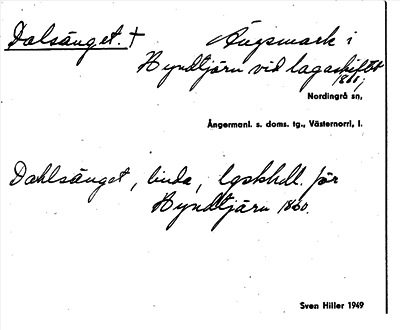 Dalsänget. † Ängsmark i
Hyndtjärn vid lagaskiftet
1860;
Nordingrå sn,
Ångermanl. s. doms. tg., Västernorrl. l.
Dahlsänget, linda, lgskhdl. för
Hyndtjärn 1860.
Sven Hiller 1949